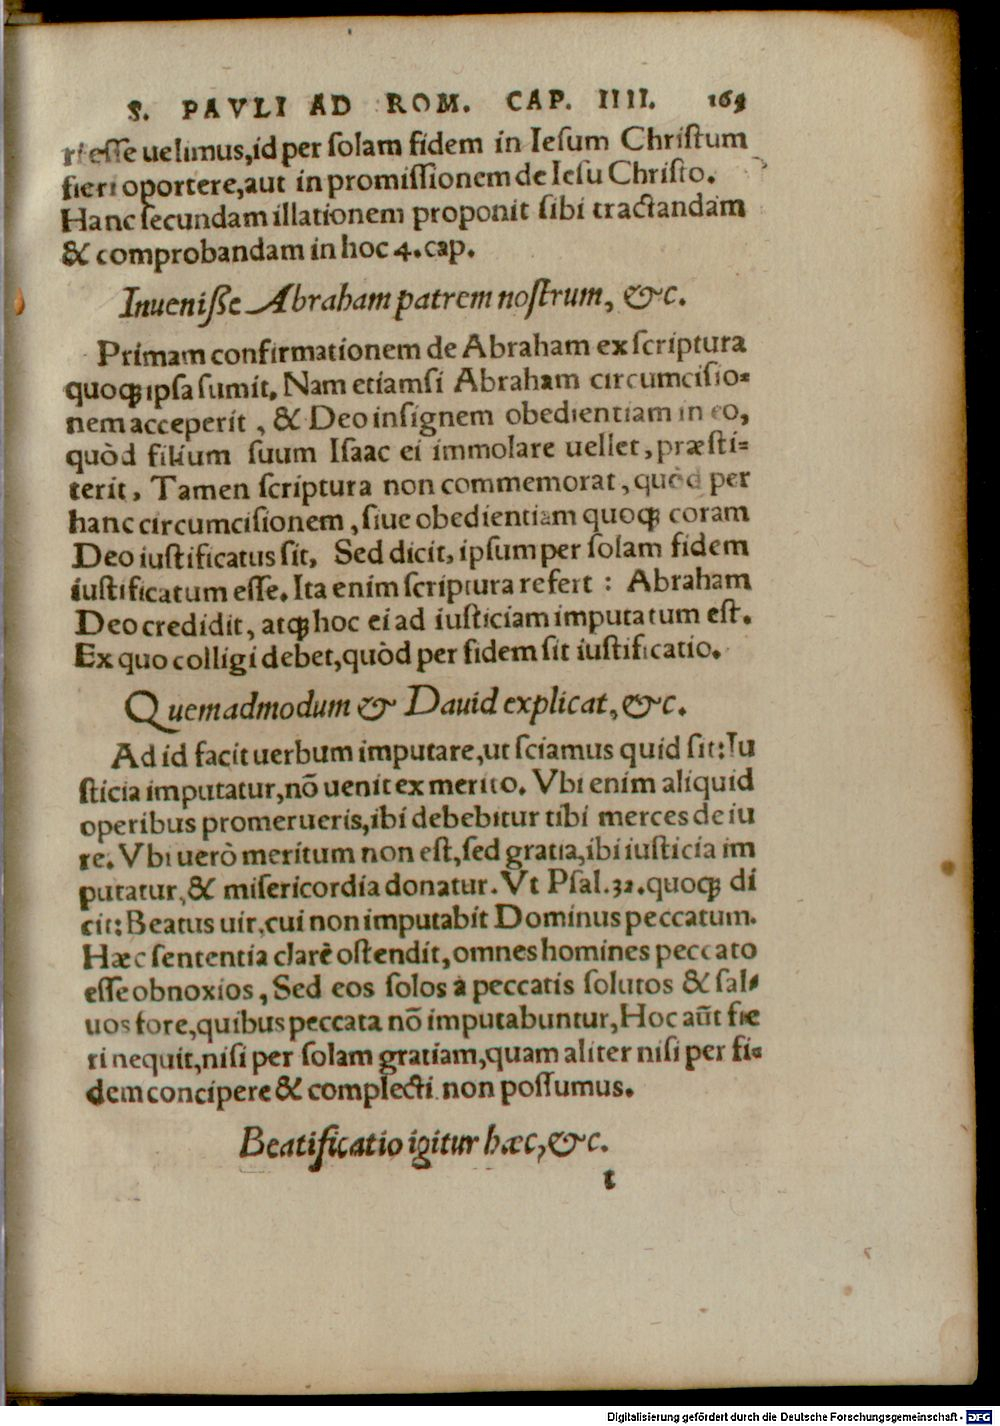 S. PAVLI AD ROM. CAP. IIII. 169
ri esse uelimus, id per solam fidem in Iesum Christum
fieri oportere, aut in promissionem de Iesu Christo.
Hanc secundam illationem proponit sibi tractandam
& comprobandam in hoc 4. cap.
Inuenisse Abraham patrem nostrum, &c.
Primam confirmationem de Abraham ex scriptura
quoqꝫ ipsa sumit. Nam etiamsi Abraham circumcisio-
nem acceperit, & Deo insignem obedientiam in eo,
quòd filium suum Isaac ei immolare uellet, præsti-
terit, Tamen scriptura non commemorat, quòd per
hanc circumcisionem, siue obedientiam quoqꝫ coram
Deo iustificatus sit, Sed dicit, ipsum per solam fidem
iustificatum esse. Ita enim scriptura refert: Abraham
Deo credidit, atqꝫ hoc ei ad iusticiam imputatum est.
Ex quo colligi debet, quòd per fidem sit iustificatio.
Quemadmodum & Dauid explicat, &c.
Ad id facit uerbum imputare, ut sciamus quid sit: Iu
sticia imputatur, nō uenit ex merito. Vbi enim aliquid
operibus promerueris, ibi debebitur tibi merces de iu
re. Vbi uerò meritum non est, sed gratia, ibi iusticia im
putatur, & misericordia donatur. Vt Psal. 32. quoqꝫ di
cit: Beatus uir, cui non imputabit Dominus peccatum.
Hæc sententia clarè ostendit, omnes homines peccato
esse obnoxios, Sed eos solos à peccatis solutos & sal-
uos fore, quibus peccata nō imputabuntur, Hoc aũt fie
ri nequit, nisi per solam gratiam, quam aliter nisi per fi-
dem concipere & complecti non possumus.
Beatificatio igitur hæc, &c.
t
Digitalisierung gefördert durch die Deutsche Forschungsgemeinschaft - DFG